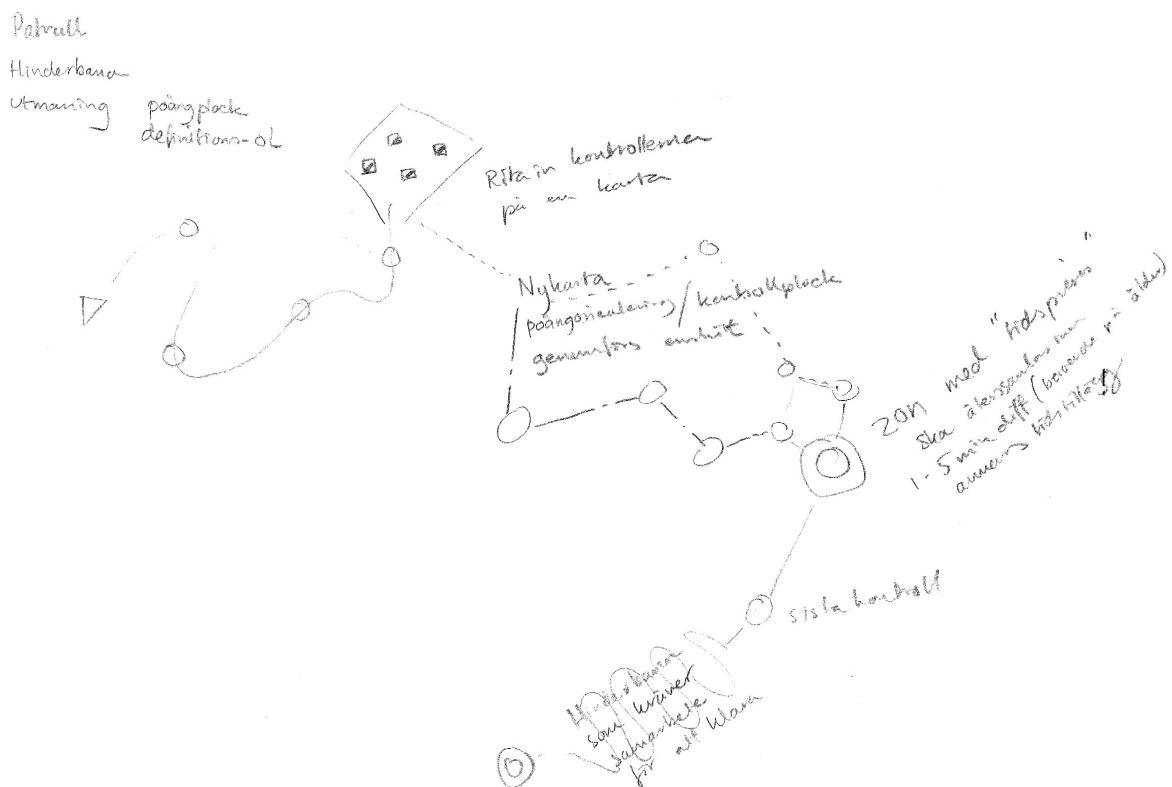 Patrull
Hinderbana
Utmaning poängplock
definitions-OL
Rita in kontrollerna
på en karta
Ny karta
poängorientering/kontrollplock
genomförs enskilt
ZON med "tidspress"
ska återsamlas inom
1-5 min diff (beroende på ålder)
annars tidstillägg
sista kontroll
Hinderbana
som kräver
samarbete
för att klara